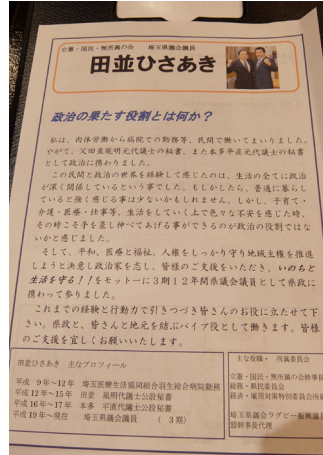 立憲・国民・無所属の会　埼玉県議会議員
田並ひさあき
政治の果たす役割とは何か？
私は、肉体労働から病院での勤務等、民間で働いてまいりました。
やがて、父田並胤明元代議士の秘書、また本多平直元代議士の秘書
として政治に携わりました。
この民間と政治の世界を経験して感じたのは、生活の全てに政治
が深く関係しているという事でした。もしかしたら、普通に暮らし
ていると強く感じる事は少ないかもしれません。しかし、子育て・
介護・医療・仕事等、生活をしていく上で色々な不安を感じた時、
その時こそ手を差し伸べてあげる事ができるのが政治の役割ではな
いかと感じました。
そして、平和、医療と福祉、人権をしっかり守り地域主権を推進
しようと決意し政治家を志し、皆様のご支援をいただき、いのちと
生活を守る！！をモットーに３期１２年間県議会議員として県政に
携わって参りました。
これまでの経験と行動力で引きつづき皆さんのお役に立たせて下
さい。県政と、皆さんと地元を結ぶパイプ役として働きます。皆様
のご支援を宜しくお願いいたします。
田並ひさあき　主なプロフィール
平成　９年～１２年　埼玉医療生活協同組合羽生総合病院勤務
平成１２年～１５年　田並　胤明代議士公設秘書
平成１６年～１７年　本多　平直代議士公設秘書
平成１９年～現在　埼玉県議会議員　（３期）
主な役職・所属委員会
立憲・国民・無所属の会幹事長
総務・県民委員会
経済・雇用対策特別委員会所属
埼玉県議会ラグビー振興議員
盟幹事長代理